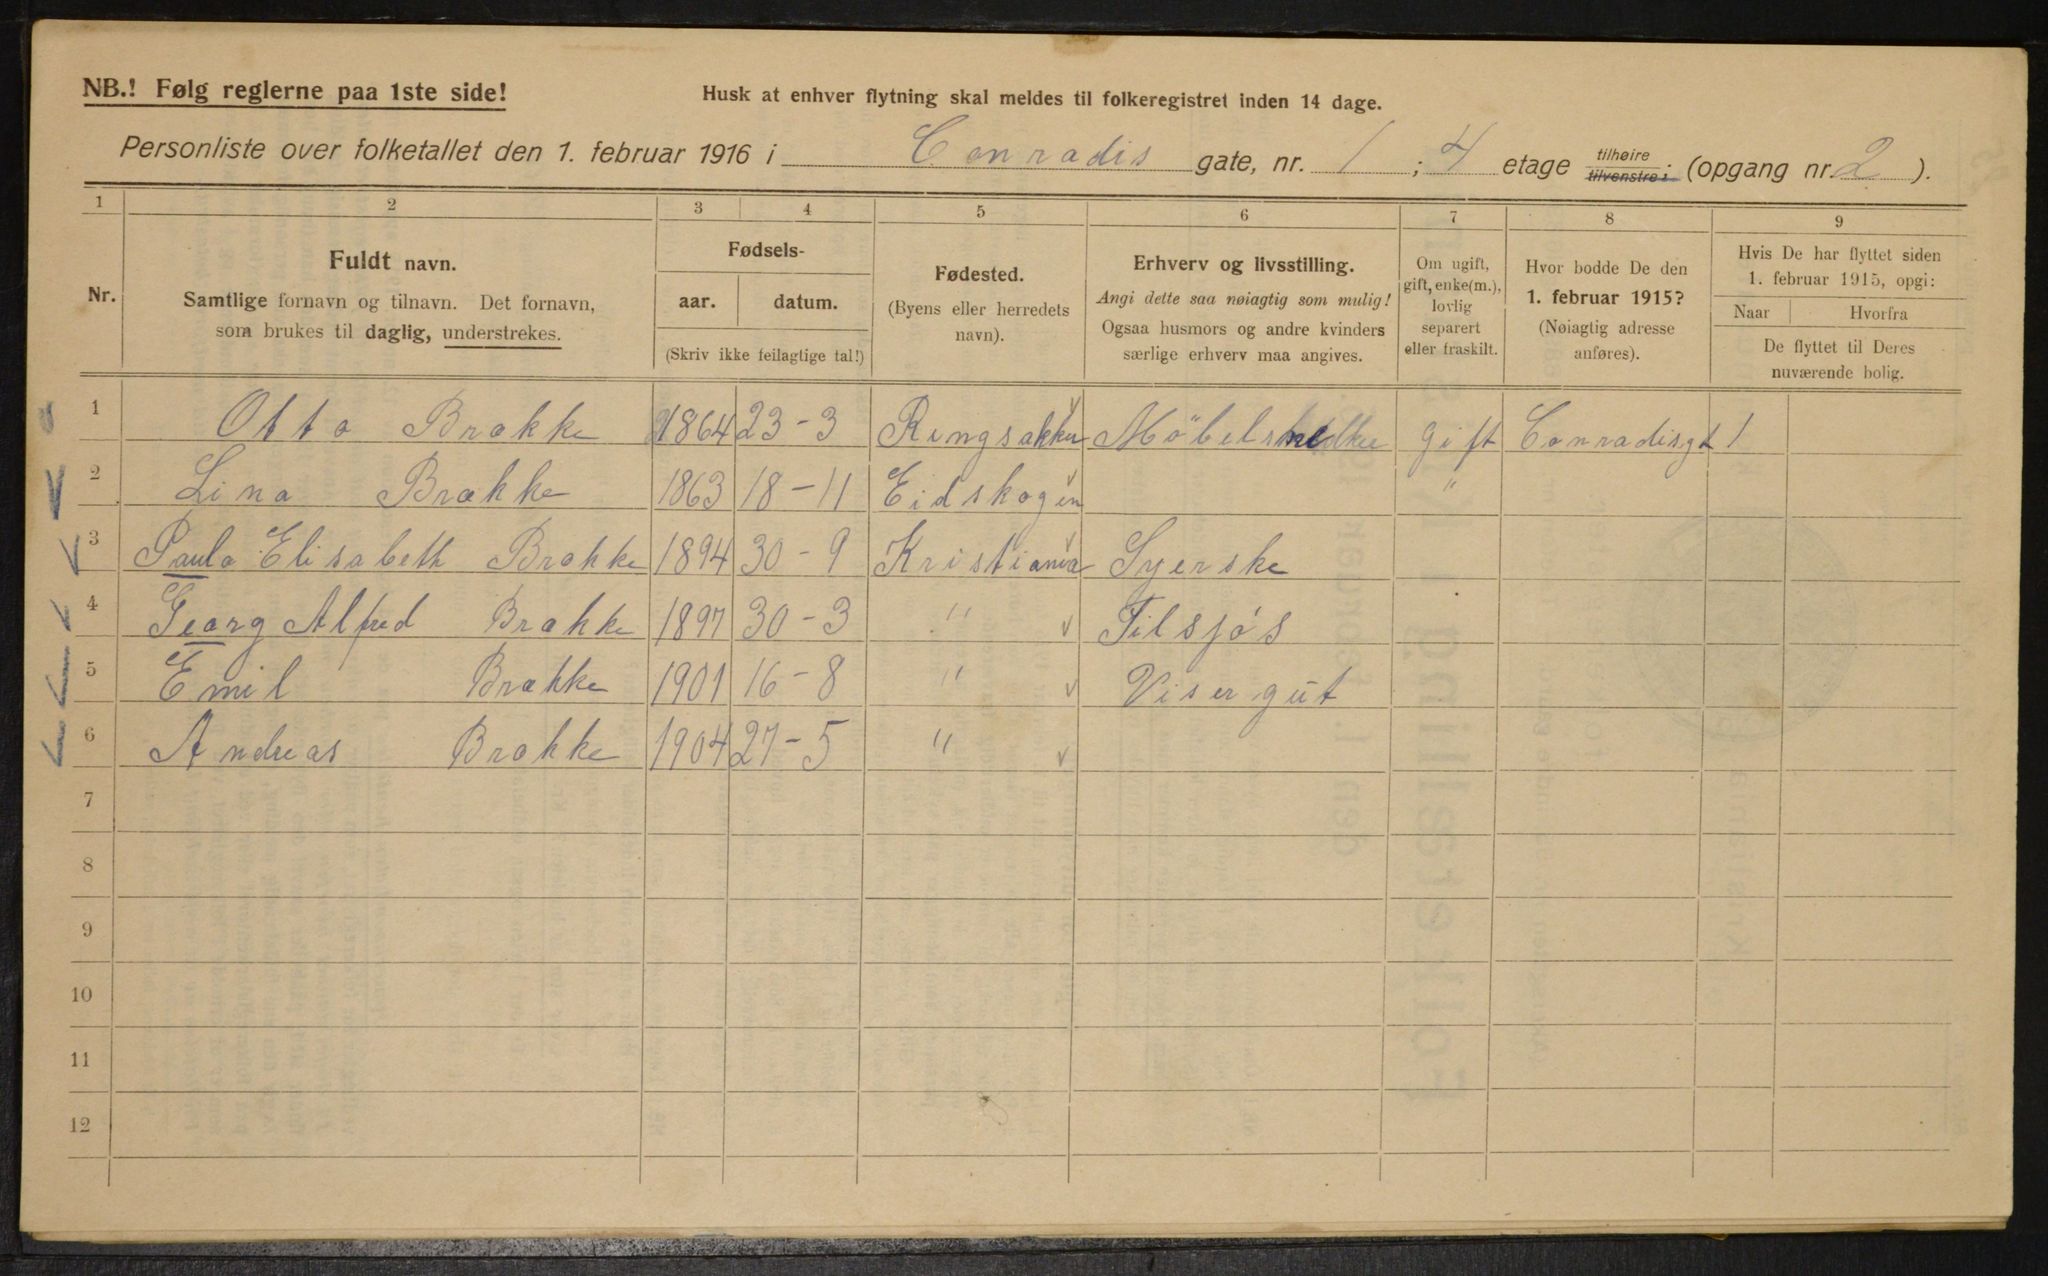 NB.! Følg reglerne paa 1ste side!
Husk at enhver flytning skal meldes til folkeregistret inden 14 dage.
Personliste over folketallet den 1. februar 1916 i Conradis gate, nr. 1 ; 4 etage tilhøire tilvenstre i (opgang nr. 2 ).
1 2 3 4 5 6 7 8 9
Nr.
Fuldt navn.
Samtlige fornavn og tilnavn. Det fornavn,
som brukes til daglig, understrekes.
Fødsels-
aar. datum.
(Skriv ikke feilagtige tal!)
Fødested.
(Byens eller herredets
navn).
Erhverv og livsstilling.
Angi dette saa nøiagtig som mulig!
Ogsaa husmors og andre kvinders
særlige erhverv maa angives.
Om ugift,
gift, enke(m.),
lovlig
separert
eller fraskilt.
Hvor bodde De den
1. februar 1915?
(Nøiagtig adresse
anføres).
Hvis De har flyttet siden
1. februar 1915, opgi:
Naar Hvorfra
De flyttet til Deres
nuværende bolig.
1 Otto Brakke 1864 23-3 Ringsakker gift Conradisgt 1
2 Lina Brakke 1863 18-11 Eidskogen "
3 Paula Elisabeth Brakke 1894 30-9 Kristiania Syerske
4 Georg Alfred Brakke 1897 30-3 " Tilsjøs
5 Emil Brakke 1901 16-8 " Visergut
6 Andreas Brakke 1904 27-5 "
7
8
9
10
11
12